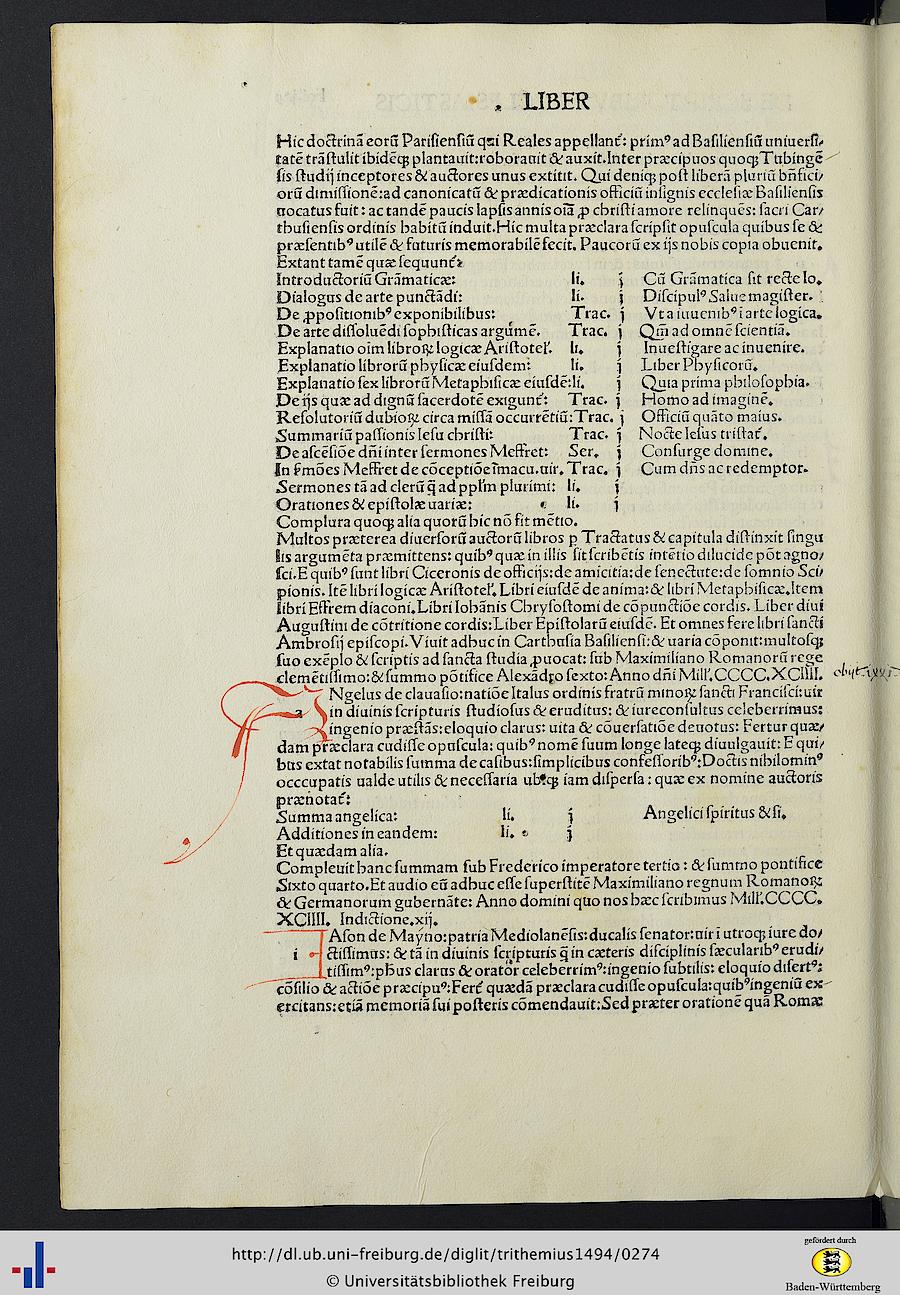 LIBER
Hic doctrinā eorū Parisiensiū qui Reales appellantˀ: primꝰ ad Basiliensiū universi/
tatē trāstulit ibidēqꝫ plantauit: roborauit & auxit. Inter præcipuos quoqꝫ Tubingē
sis studij inceptores & auctores unus extitit. Qui deniqꝫ post liberā pluriū bn̄fici/
orū dimissionē: ad canonicatū & prædicationis officiū insignis ecclesiæ Basiliensis
uocatus fuit: ac tandē paucis lapsis annis oīa ꝓ christi amore relinquēs: sacri Car/
thusiensis ordinis habitū induit. Hic multa præclara scripsit opuscula quibus se &
præsentibꝰ utilē & futuris memorabilē fecit. Paucorū ex ijs nobis copia obuenit.
Extant tamē quæ sequuntˀ:
Introductoriū Grāmaticæ: li. j Cū Grāmatica sit recte lo.
Dialogus de arte punctādi: li. j Discipulꝰ Salue magister.
De ꝓpositionibꝰ exponibilibus: Trac. j Vt a iuuenibꝰ i arte logica.
De arte dissoluēdi sophisticas argumē. Trac. j Qm̄ ad omnē scientiā.
Explanatio oīm libroꝝ logicæ Aristotelˀ. li. j Inuestigare ac inuenire.
Explanatio librorū physicæ eiusdem: li. j Liber Physicorū.
Explanatio sex librorū Metaphisicæ eiusdē: li. j Quia prima philosophia.
De ijs quæ ad dignū sacerdotē exiguntˀ: Trac. j Homo ad imaginē.
Resolutoriū dubioꝝ circa missā occurrētiū: Trac. j Officiū quāto maius.
Summariū passionis Iesu christi: Trac. j Nocte Iesus tristatˀ.
De ascēsiōe dn̄i inter sermones Meffret: Ser. j Consurge domine.
In s̄mōes Meffret de cōceptiōe īmacu. uir. Trac. j Cum dn̄s ac redemptor.
Sermones tā ad clerū q̄ ad pplˀm plurimi: li. j
Orationes & epistolæ uariæ: li. j
Complura quoqꝫ alia quorū hic nō fit mētio.
Multos præterea diuersorū auctorū libros p Tractatus & capitula distinxit singu
lis argumēta præmittens: quibꝰ quæ in illis sit scribētis intētio dilucide pōt agno/
sci. E quibꝰ sunt libri Ciceronis de officijs: de amicitia: de senectute: de somnio Sci/
pionis. Itē libri logicæ Aristotelˀ. Libri eiusdē de anima: & libri Metaphisicæ. Item
libri Effrem diaconi. Libri Iohānis Chrysostomi de cōpunctiōe cordis. Liber diui
Augustini de cōtritione cordis: Liber Epistolarū eiusdē. Et omnes fere libri sancti
Ambrosij episcopi. Viuit adhuc in Carthusia Basiliensi: & uaria cōponit: multosqꝫ
suo exēplo & scriptis ad sancta studia ꝓuocat: sub Maximiliano Romanorū rege
clemētissimo: & summo pōtifice Alexādro sexto: Anno dn̄i Millˀ. CCCC. XCIIII. obijt
Ngelus de clauasio: natiōe Italus ordinis fratrū minoꝝ sancti Francisci: uir
a in diuinis scripturis studiosus & eruditus: & iureconsultus celeberrimus:
ingenio præstās: eloquio clarus: uita & cōuersatiōe deuotus: Fertur quæ/
dam præclara cudisse opuscula: quibꝰ nomē suum longe lateqꝫ diuulgauit: E qui/
bus extat notabilis summa de casibus: simplicibus confessoribꝰ: Doctis nihilominꝰ
occcupatis ualde utilis & necessaria ubiqꝫ iam dispersa: quæ ex nomine auctoris
prænotatˀ:
Summa angelica: li. j Angelici spiritus & si.
Additiones in eandem: li. j
Et quædam alia.
Compleuit hanc summam sub Frederico imperatore tertio: & summo pontifice
Sixto quarto. Et audio eū adhuc esse superstitē Maximiliano regnum Romanoꝝ
& Germanorum gubernāte: Anno domini quo nos hæc scribimus Millˀ. CCCC.
XCIIII. Indictione. xij.
IAson de Mayno: patria Mediolanēsis: ducalis senator: uir i utroqꝫ iure do/
i ctissimus: & tā in diuinis scripturis q̄ in cæteris disciplinis sæcularibꝰ erudi/
tissimꝰ: phūs clarus & orator celeberrimꝰ: ingenio subtilis: eloquio disertꝰ:
cōsilio & actiōe præcipuꝰ: Fertˀ quædā præclara cudisse opuscula: quibꝰ ingeniū ex
ercitans: etiā memoriā sui posteris cōmendauit: Sed præter orationē quā Romæ
http://dl.ub.uni-freiburg.de/diglit/trithemius1494/0274
© Universitätsbibliothek Freiburg
gefördert durch
Baden-Württemberg